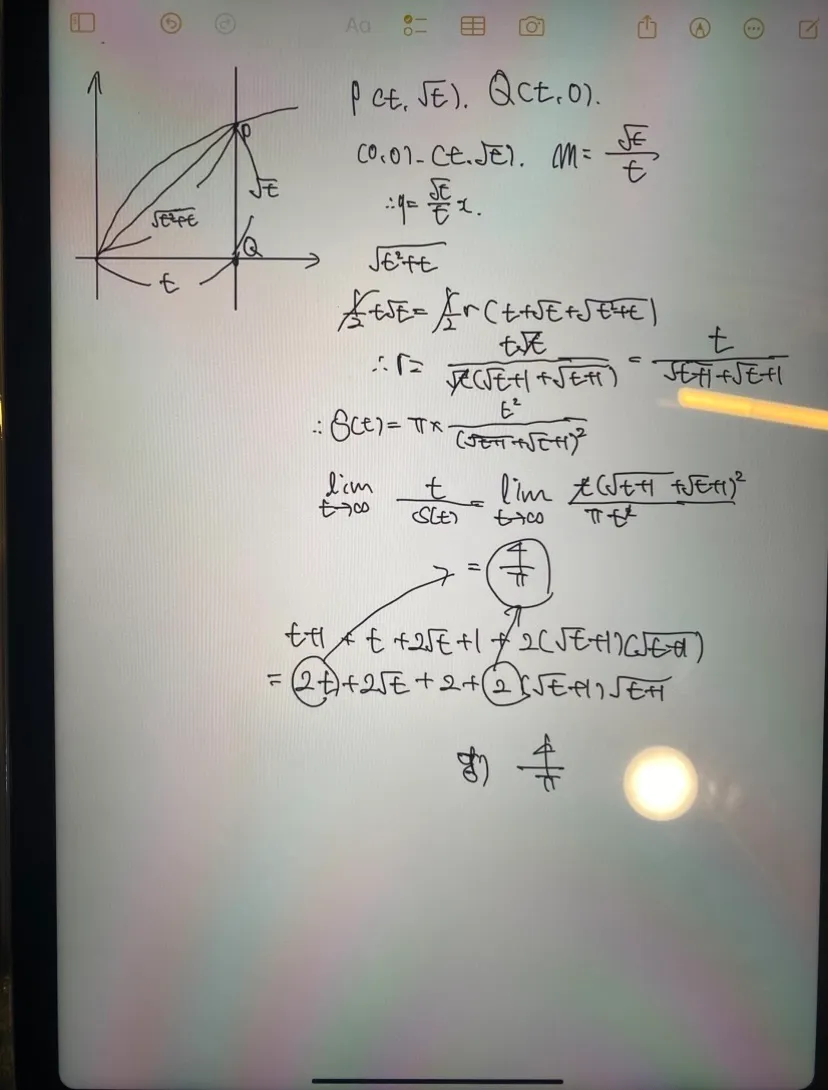 Aa
P(t, √t). Q(t, 0).
(0,0) - (t, √t). m = √t/t
∴ y = √t/t x.
√(t²+t)
P
√t
√(t²+t)
Q
t
1/2 t√t = 1/2 r(t+√t+√(t²+t))
∴ r = t√t / √t(√t+1+√(t+1)) = t / (√(t+1)+√t+1)
∴ S(t) = π × t² / (√(t+1)+√t+1)²
lim t→∞ t/S(t) = lim t→∞ t(√(t+1)+√t+1)² / πt²
= 4/π
t+1 + t+2√t+1 + 2(√t+1)(√(t+1))
= 2t+2√t+2+2(√t+1)√(t+1)
답) 4/π